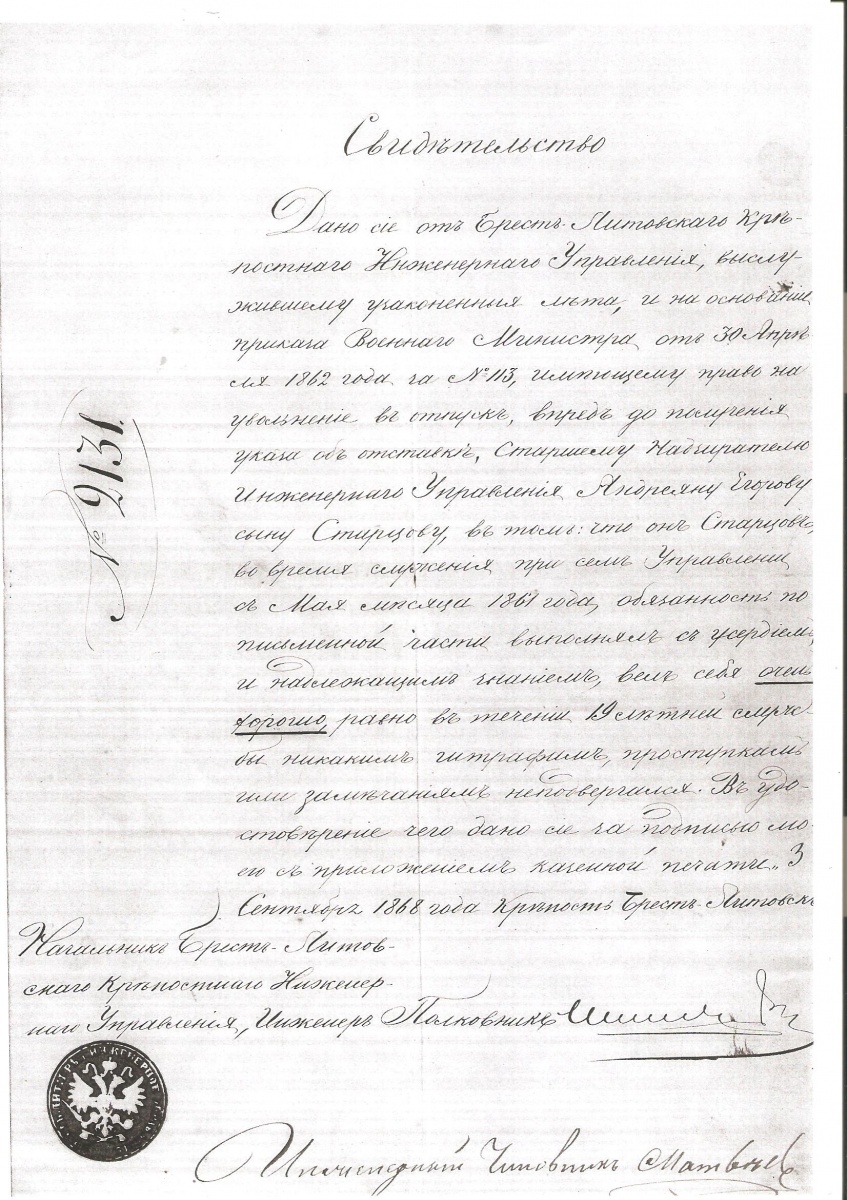 Свидѣтельство
Дано сіе отъ Брестъ-Литовскаго Крѣ-
постнаго Инженернаго Управленія, выслу-
жившему узаконенныя лѣта, и на основаніи
приказа Военнаго Министра отъ 30 Апрѣ-
ля 1862 года за № 113, имѣющему право на
увольненіе въ отпускъ, впредь до полученія
указа объ отставкѣ, Старшему Надзирателю
Инженернаго Управленія Андреяну Егорову
сыну Старцову, въ томъ: что онъ Старцовъ,
во время служенія при семъ Управленіи
съ Мая мѣсяца 1861 года, обязанность по
письменной части выполнялъ съ усердіемъ,
и надлежащимъ знаніемъ, велъ себя очень
хорошо, равно въ теченіи 19 лѣтней служ-
бы никакимъ штрафамъ, проступкамъ
или замѣчаніямъ неподвергался. Въ удо-
стовѣреніе чего дано сіе за подписью мо-
ею съ приложеніемъ казенной печати „3
Сентября 1868 года Крѣпость Брестъ-Литовскъ
№ 2131.
Начальникъ Брестъ-Литов-
скаго Крѣпостнаго Инженер-
наго Управленія, Инженеръ Полковникъ
Чиновникъ Матвѣев